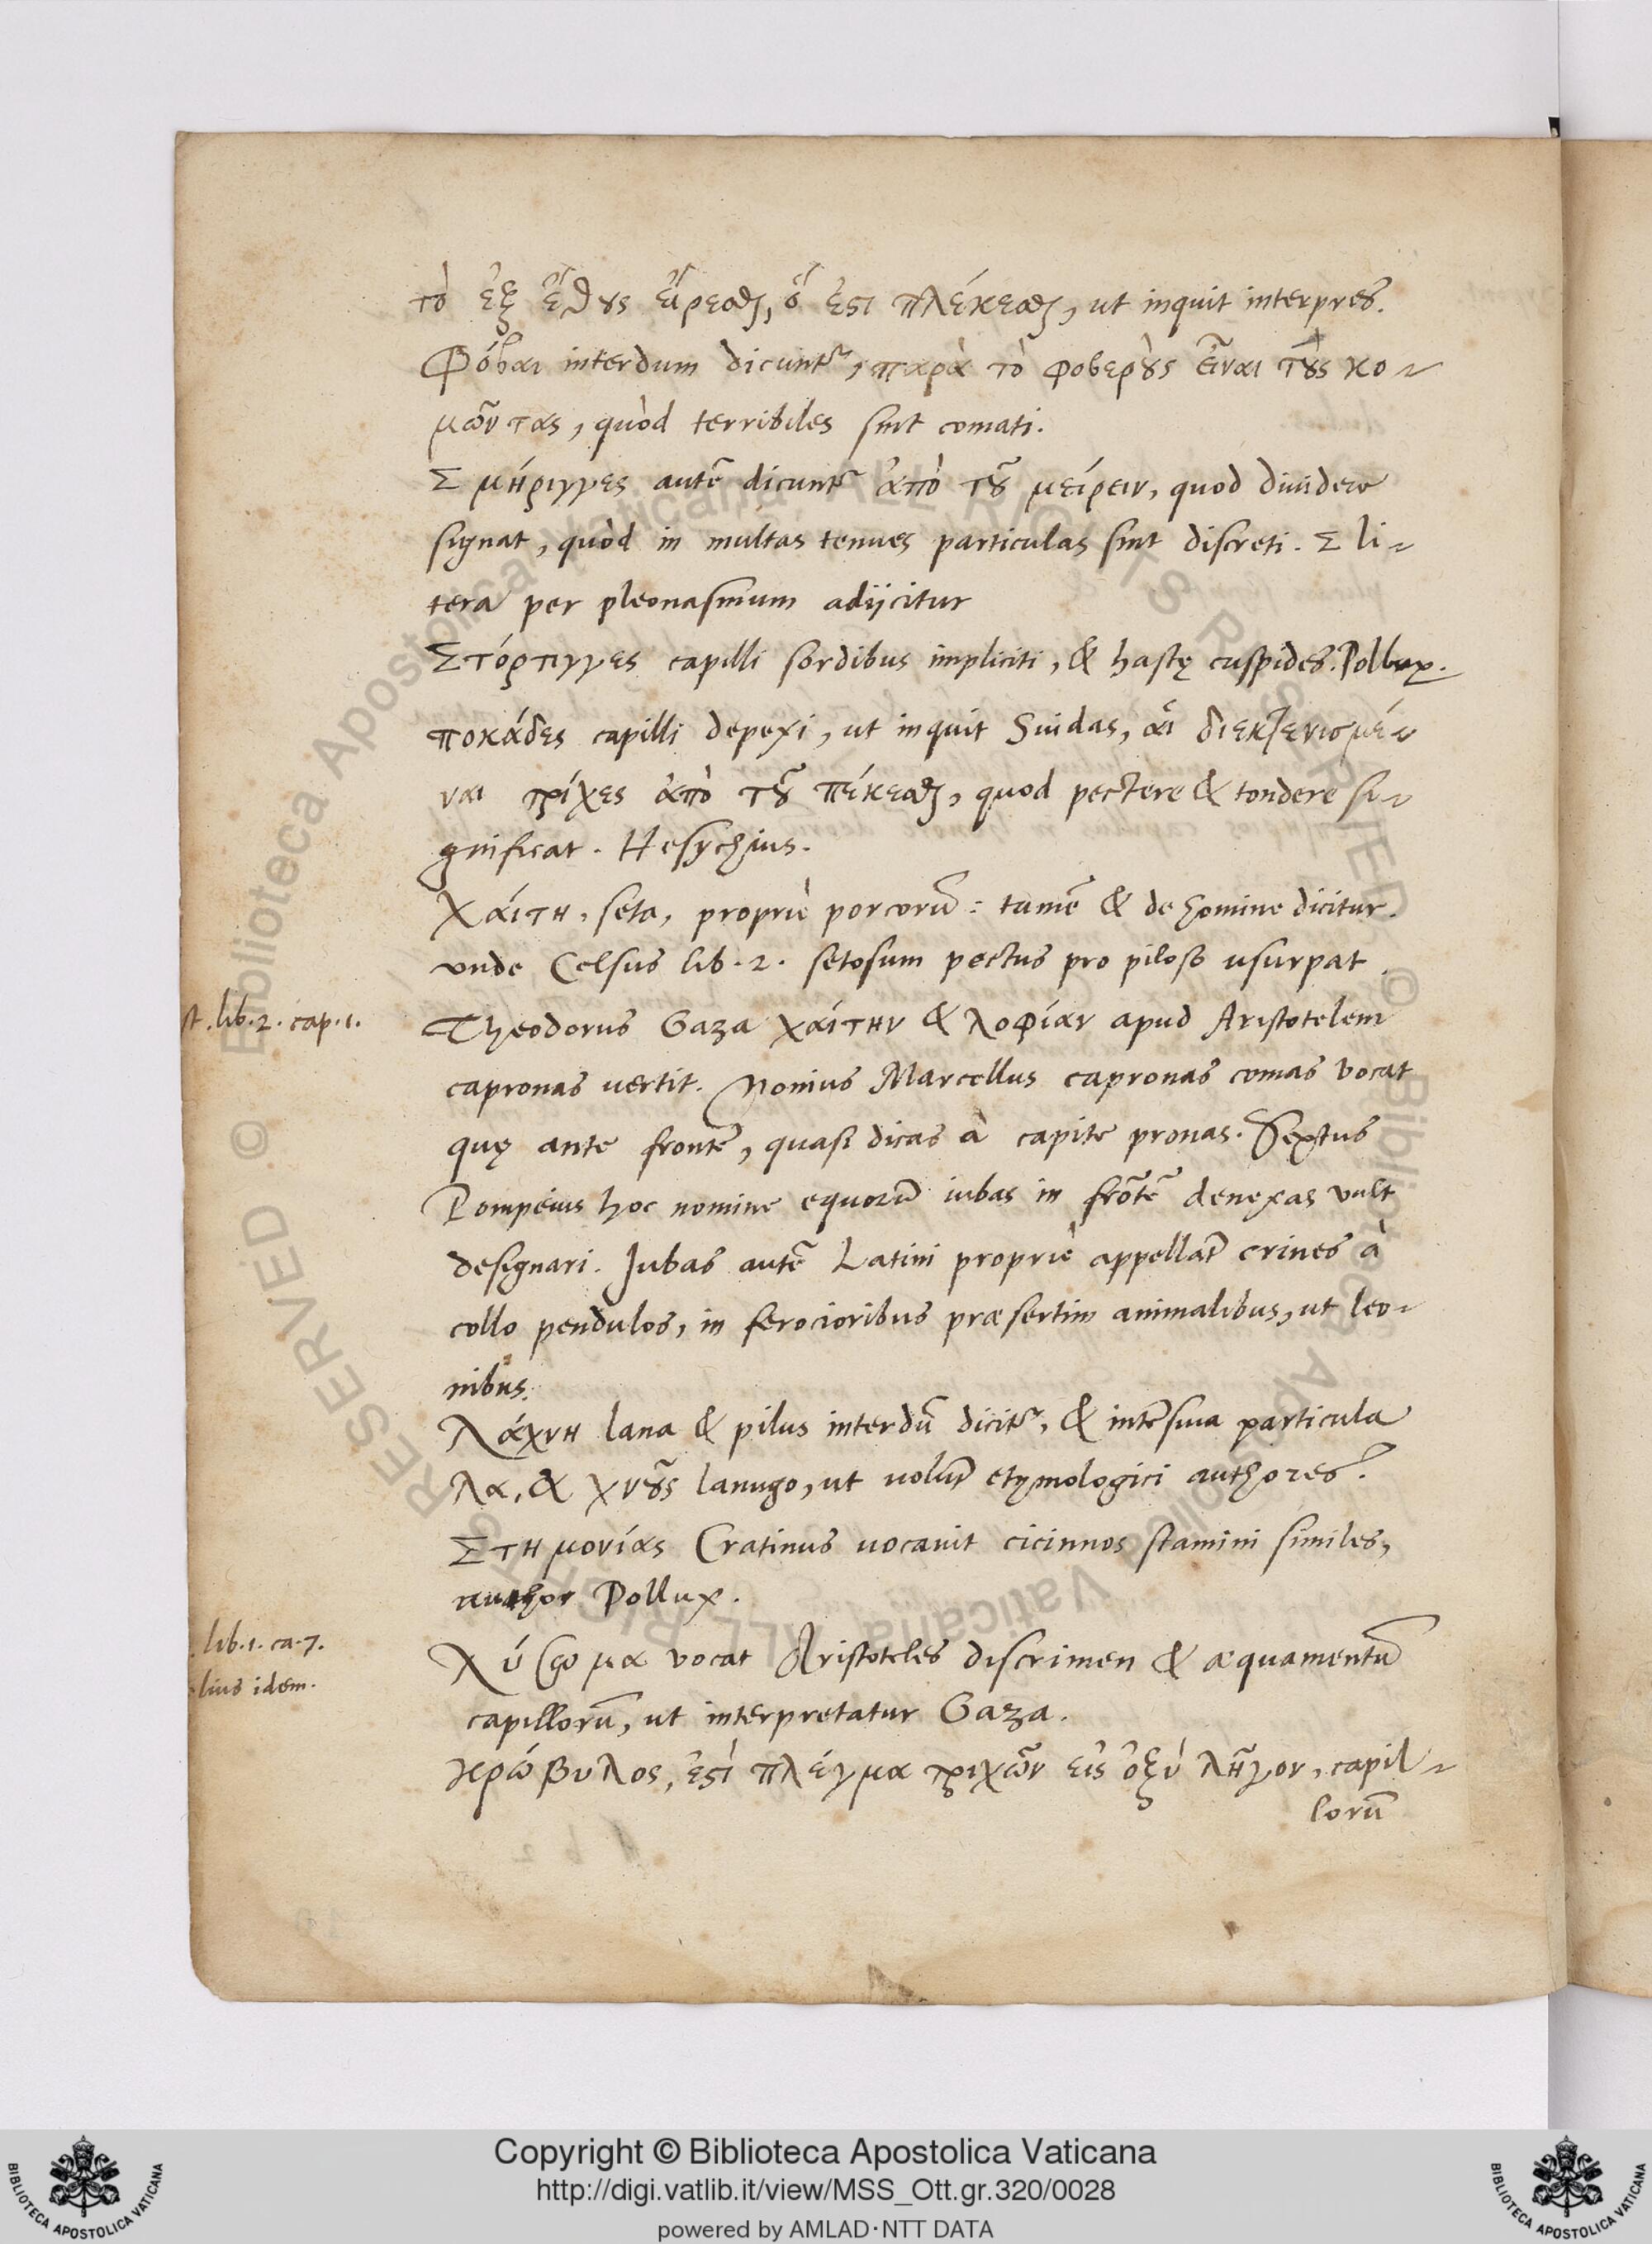 τὸ ἐξ ἔθους εἴρεσθαι, ὅ ἐστι πλέκεσθαι, ut inquit interpres.
Φόβαι interdum dicuntr, παρὰ τὸ φοβεροὺς εἶναι τοὺς κο-
μῶντας, quòd terribiles sint comati.
Σμήριγγες autē dicuntr ἀπὸ τοῦ μείρειν, quod diuidere
signat, quòd in multas tenues particulas sint discreti. Σ li-
tera per pleonasmum adijcitur
Στόρτιγγες capilli sordibus impliciti, & hastę cuspides. Pollux.
ποκάδες capilli depexi, ut inquit Suidas, αἱ διεκτενισμέ-
ναι τρίχες ἀπὸ τοῦ πέκεσθαι, quod pectere & tondere si-
gnificat. Hesychius.
Χάιτη, seta, propriè porcorū: tamē & de homine dicitur.
vnde Celsus lib. 2. setosum pectus pro piloso usurpat.
st. lib. 2. cap. 1.
Theodorus Gaza χάιτην & λοφίαν apud Aristotelem
capronas uertit. Nonius Marcellus capronas comas vocat
quę ante frontē, quasi dicas à capite pronas. Sextus
Pompeius hoc nomine equorū iubas in frōtē denexas vult
designari. Jubas autē Latini propriè appellāt crines à
collo pendulos, in ferocioribus præsertim animalibus, ut leo-
nibus.
Λάχνη lana & pilus interdū dicitr, & intēsiua particula
λα, & χνοῦς lanugo, ut uolūt etymologici authores.
Στημονίας Cratinus uocauit cicinnos stamini similes,
author Pollux.
lib. 1. ca. 7.
lius idem.
Λύσωμα vocat Aristoteles discrimen & æquamentū
capillorū, ut interpretatur Gaza.
Κρώβυλος, ἐστὶ πλέγμα τριχῶν εἰς ὀξὺ λῆγον, capil-
lorū
Copyright © Biblioteca Apostolica Vaticana
http://digi.vatlib.it/view/MSS_Ott.gr.320/0028
powered by AMLAD·NTT DATA
BIBLIOTECA APOSTOLICA VATICANA
BIBLIOTECA APOSTOLICA VATICANA